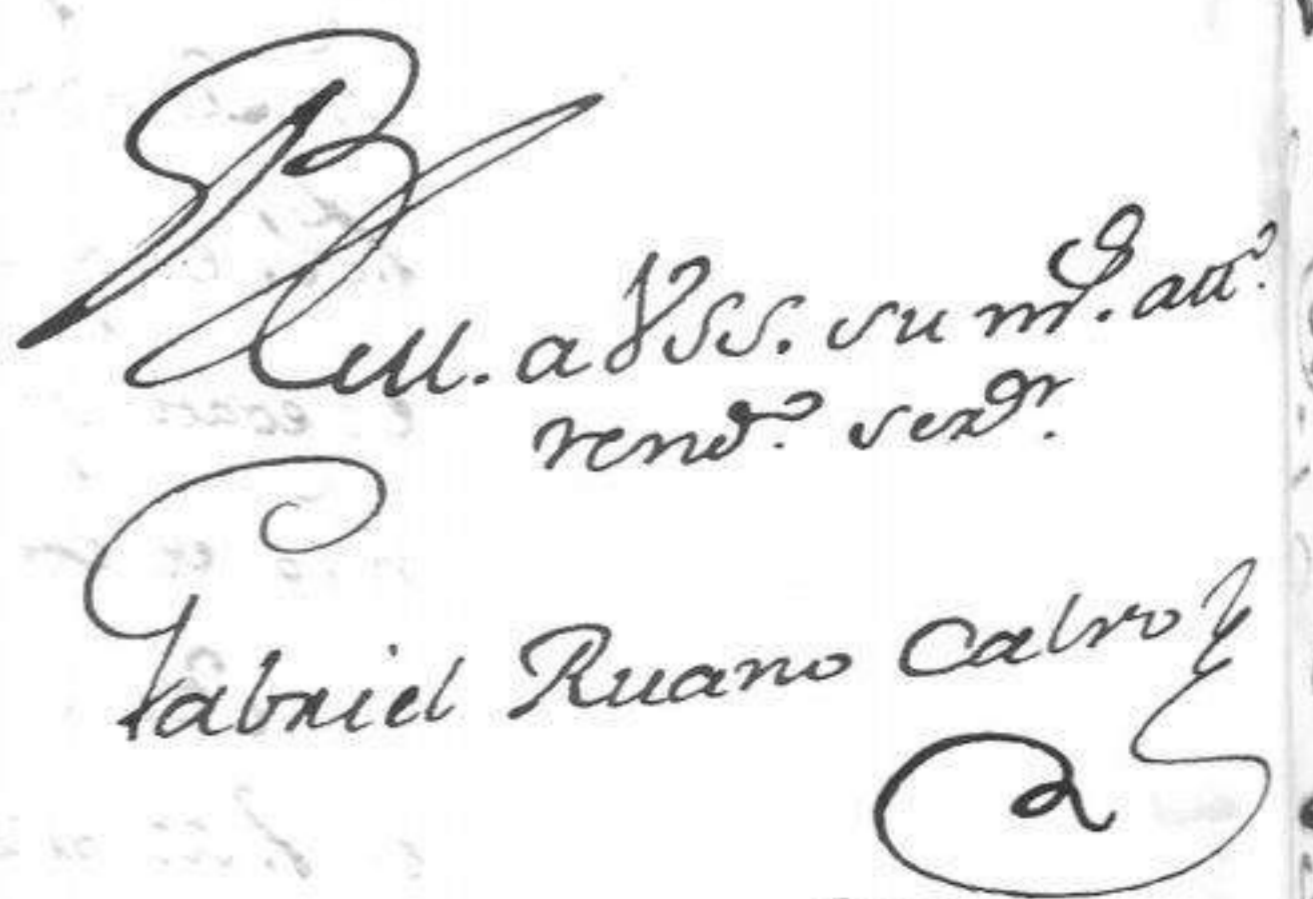 BLM. a VSS. su mr. att.o
rend.o serv.or
Gabriel Ruano Calvo